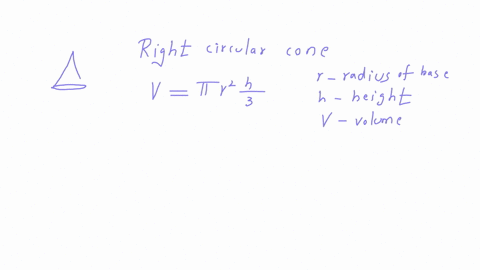 Right circular cone
V = πr² h/3
r - radius of base
h - height
V - volume